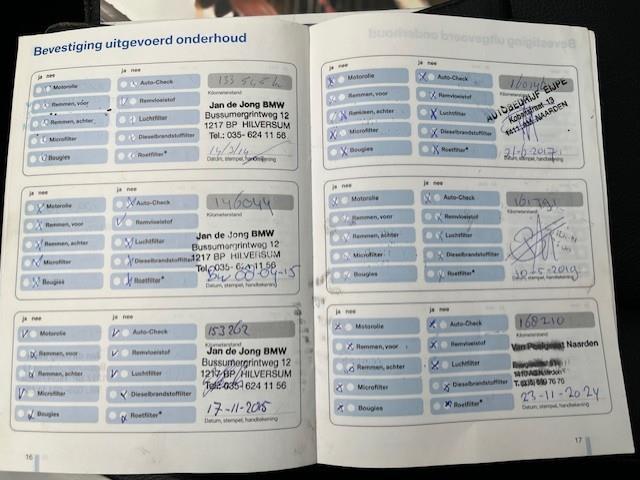 Bevestiging uitgevoerd onderhoud
ja nee ja nee
Motorolie Auto-Check
Remmen, voor Remvloeistof
Remmen, achter Luchtfilter
Microfilter Dieselbrandstoffilter
Bougies Roetfilter*
Kilometerstand
Jan de Jong BMW
Bussumergrintweg 12
1217 BP HILVERSUM
Tel.: 035- 624 11 56
14/3/14
Datum, stempel, handtekening
ja nee ja nee
Motorolie Auto-Check
Remmen, voor Remvloeistof
Remmen, achter Luchtfilter
Microfilter Dieselbrandstoffilter
Bougies Roetfilter*
146044
Kilometerstand
Jan de Jong BMW
Bussumergrintweg 12
1217 BP HILVERSUM
Tel.: 035- 624 11 56
08-04-15
Datum, stempel, handtekening
ja nee ja nee
Motorolie Auto-Check
Remmen, voor Remvloeistof
Remmen, achter Luchtfilter
Microfilter Dieselbrandstoffilter
Bougies Roetfilter*
153262
Kilometerstand
Jan de Jong BMW
Bussumergrintweg 12
1217 BP HILVERSUM
Tel.: 035- 624 11 56
17-11-2015
Datum, stempel, handtekening
16
ja nee ja nee
Motorolie Auto-Check
Remmen, voor Remvloeistof
Remmen, achter Luchtfilter
Microfilter Dieselbrandstoffilter
Bougies Roetfilter*
Kilometerstand
AUTOBEDRIJF EIJPE
Kobaltstraat 13
NAARDEN
Datum, stempel, handtekening
ja nee ja nee
Motorolie Auto-Check
Remmen, voor Remvloeistof
Remmen, achter Luchtfilter
Microfilter Dieselbrandstoffilter
Bougies Roetfilter*
161791
Kilometerstand
10-5-2019
Datum, stempel, handtekening
ja nee ja nee
Motorolie Auto-Check
Remmen, voor Remvloeistof
Remmen, achter Luchtfilter
Microfilter Dieselbrandstoffilter
Bougies Roetfilter*
168210
Kilometerstand
Naarden
23-11-2024
Datum, stempel, handtekening
17